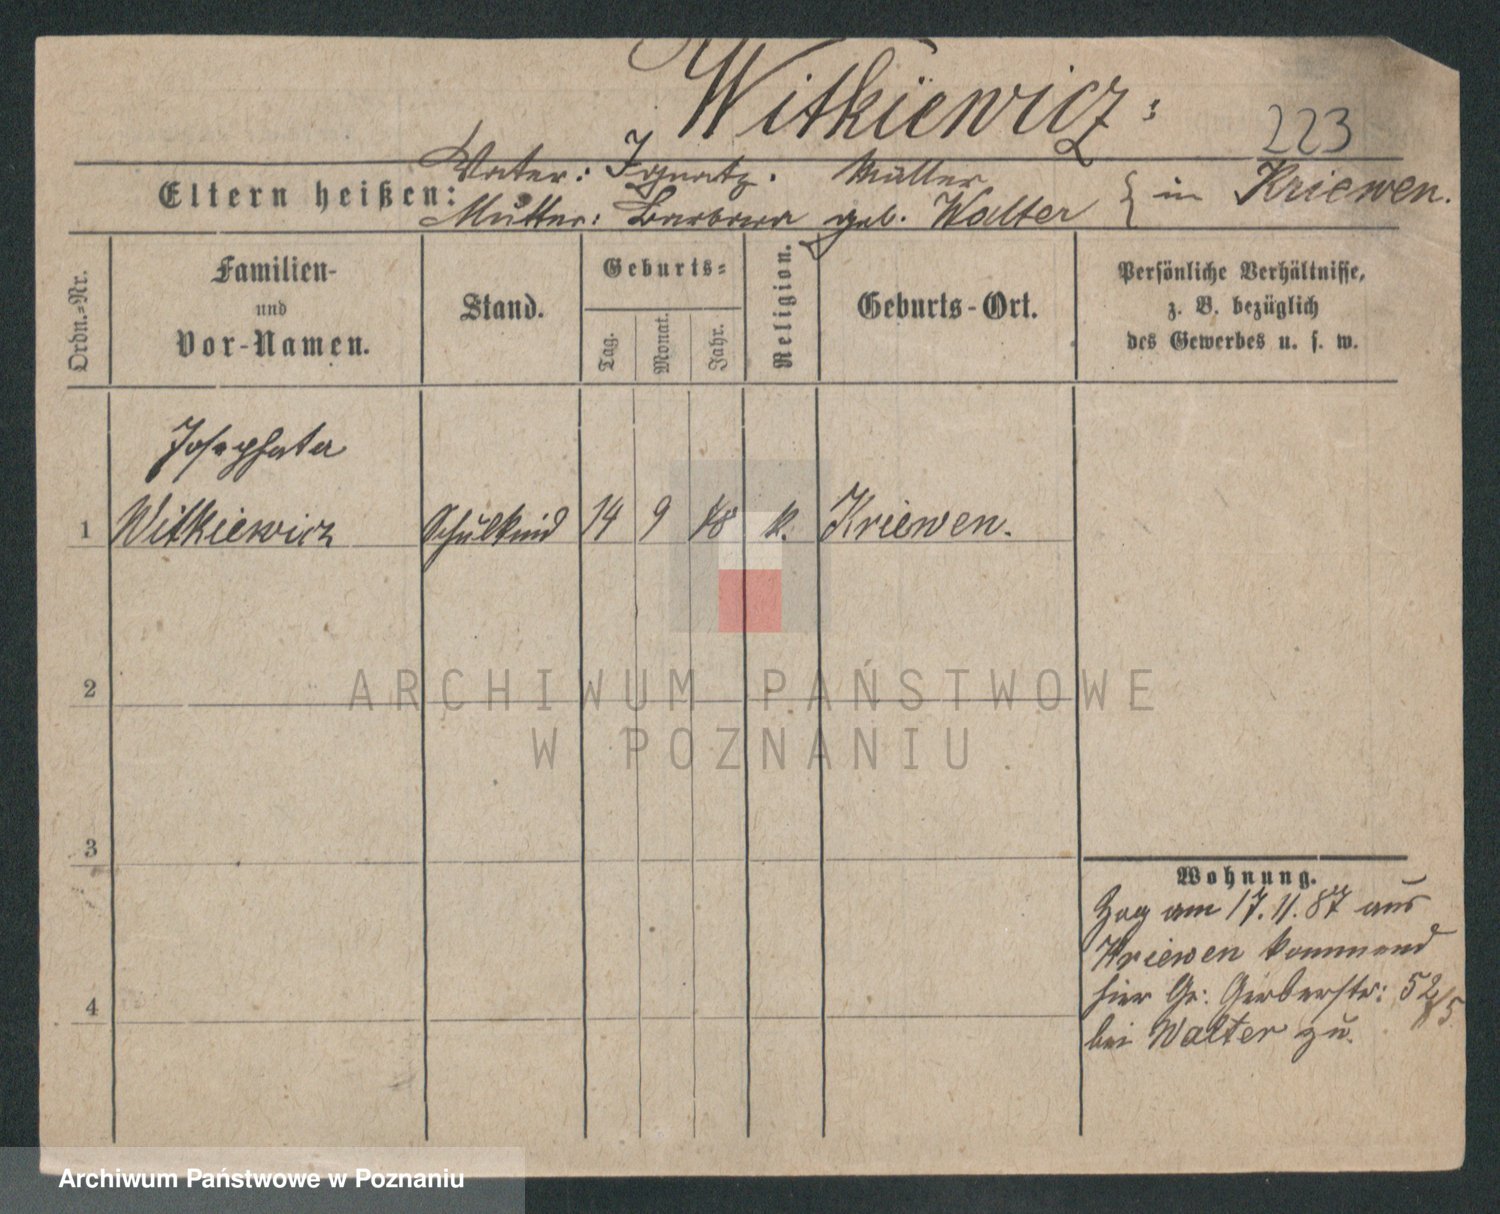 Witkiewicz
223
Vater: Ignatz. Müller
Eltern heißen: Mutter: Barbara geb. Walter } in Kriewen.
Ordn.-Nr.
Familien-
und
Vor-Namen.
Stand.
Geburts-
Tag.
Monat.
Jahr.
Religion.
Geburts-Ort.
Persönliche Verhältnisse,
z. B. bezüglich
des Gewerbes u. s. w.
Josephata
1 Witkiewicz Schulkind 14 9 k. Kriewen.
2
3
4
Wohnung.
Zog am 17.11.87 aus
Kriewen kommend
hier Gr: Gerberstr: 52/5
bei Walter zu.
ARCHIWUM PAŃSTWOWE
W POZNANIU
Archiwum Państwowe w Poznaniu